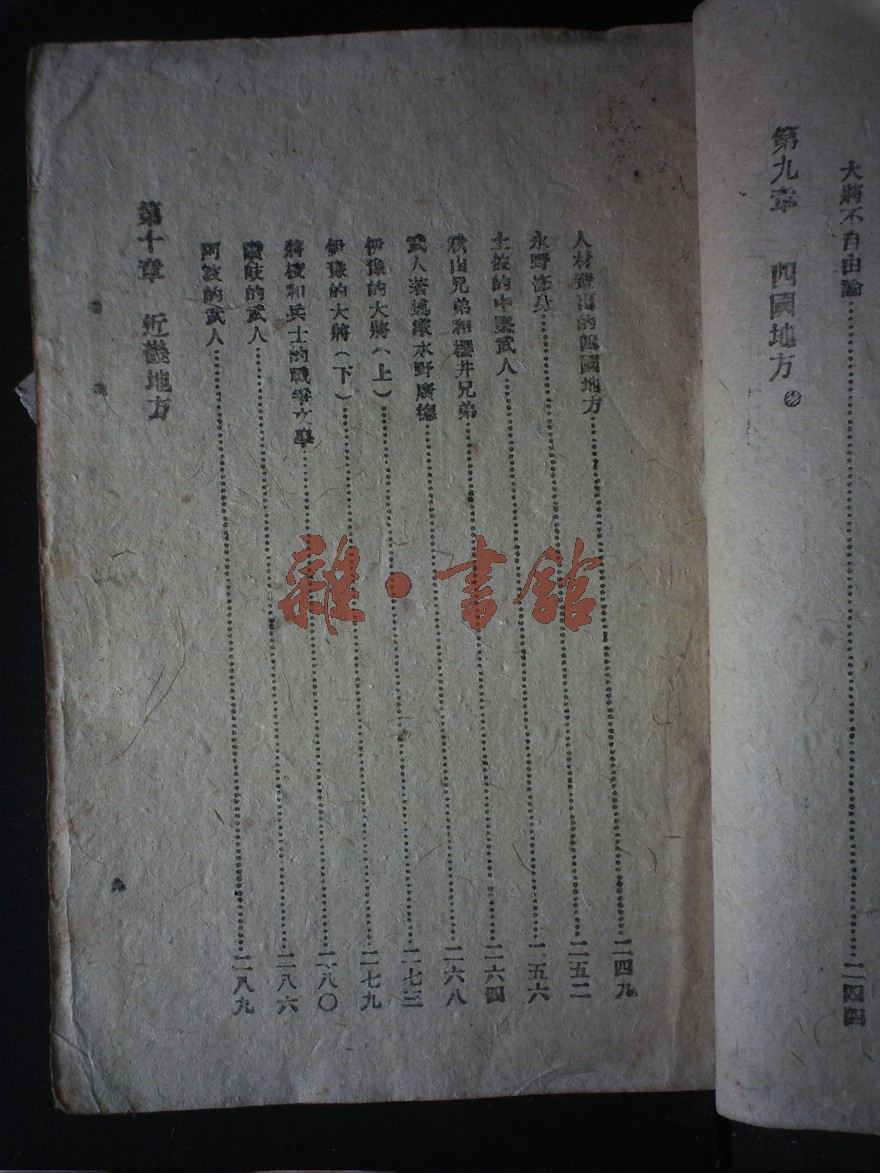 大將不自由論……二四四
第九章　四國地方
人材輩出的四國地方……二四九
永野修身……二五二
土佐的中堅武人……二五六
秋山兄弟和櫻井兄弟……二六四
武人著述家水野廣德……二六八
伊豫的大將（上）……二七三
伊豫的大將（下）……二七九
將校和兵士的戰爭文學……二八〇
讚岐的武人……二八六
阿波的武人……二八九
第十章　近畿地方
雜·書館